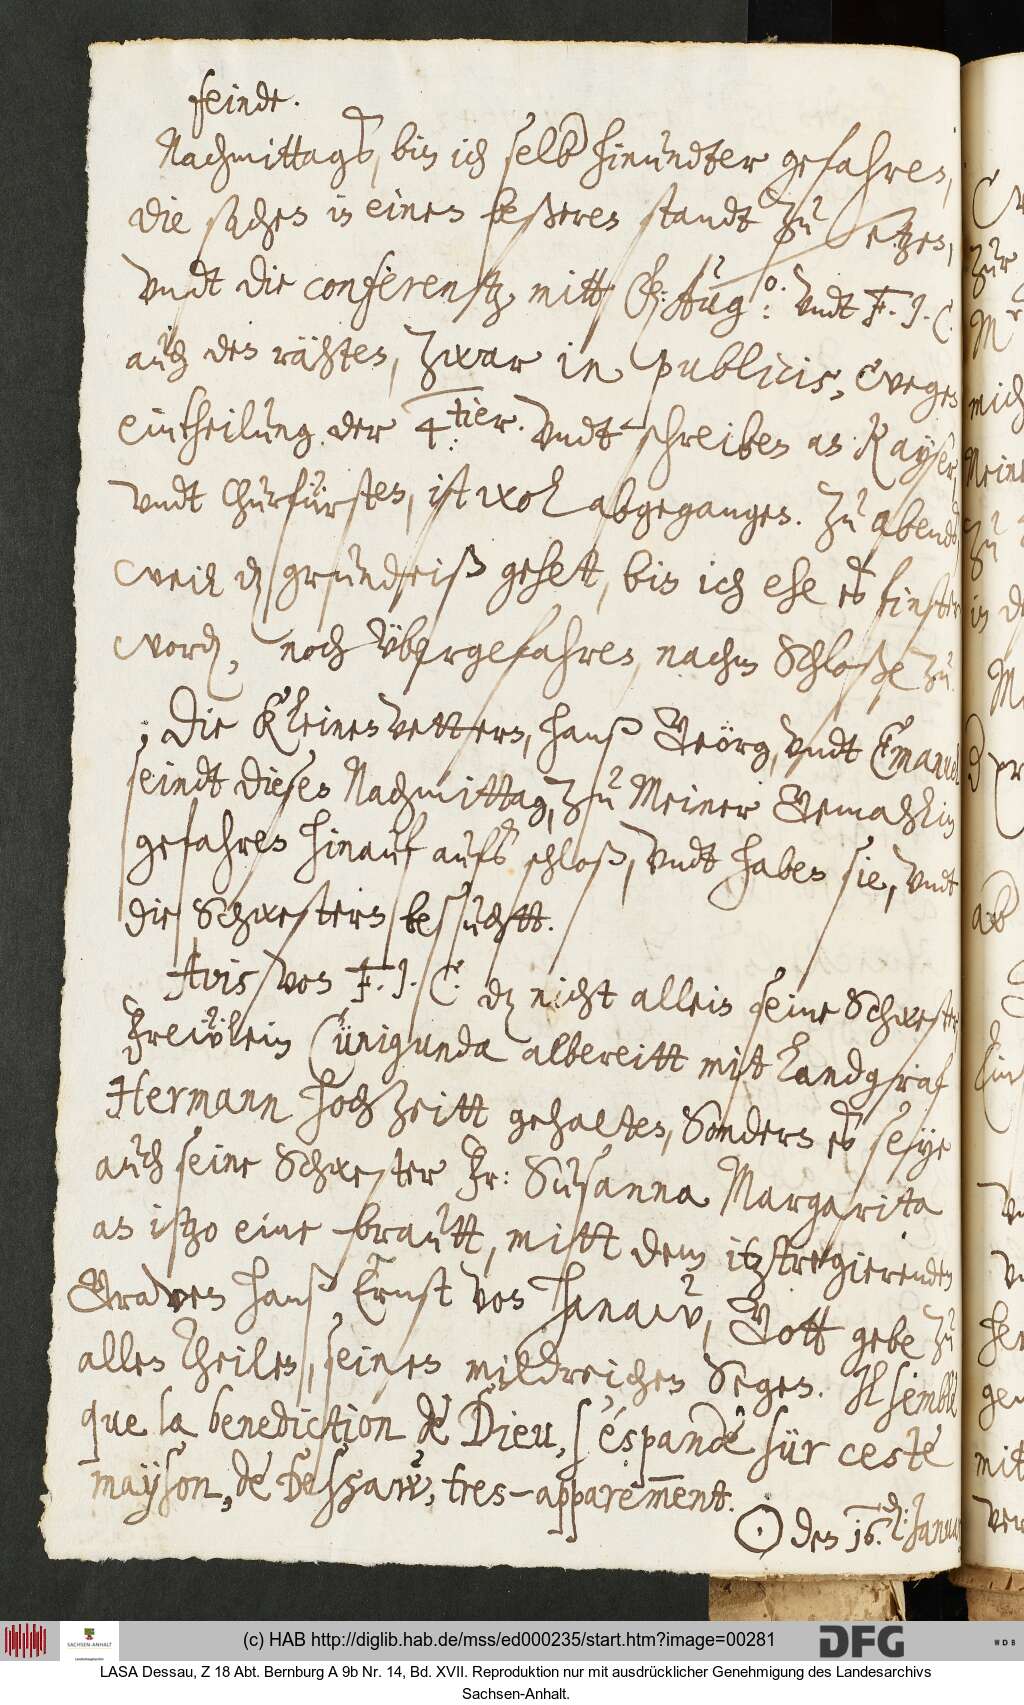 feinde.
Nachmittags, bin ich selb hinundter gefahren,
die sachen in einen beßeren standt zu setzen,
vndt die conferentz, mitt F: Aug:o: vndt F. J. C.
auch den rähten, zwar in publicis, wegen
eintheilung, der 4.tier. vndt schreiben an Kayser,
vndt Churfürsten, ist wol abgegangen. Zu abends,
weil dz grundeiß gehet, bin ich ehe es finster
word, noch vbergefahren, nachm Schloße zu.
Die kleinen vettern, Hanß Geörg, vndt Emanuel
seindt diesen Nachmittag, zu Meiner Gemahlin
gefahren hinauf aufs schloß, vndt haben sie, vndt
die Schwestern besuchtt.
Avis von F. J. C. dz nicht allein seine Schwester
Freẅlein Cunigunda albereitt mit Landgraf
Hermann hochzeitt gehalten, Sondern es seye
auch seine Schwester Fr: Susanna Margarita
an itzo eine brautt, mitt dem itztregierenden
Graven Hanß Ernst von Hanaw, Gott gebe zu
allen theilen, seinen mildreichen Segen. Il semble
que la benediction de Dieu, s'éspande sür ceste
mayson, de Dessaw, tres-apparemment.
⊙ den 16. Januar
(c) HAB http://diglib.hab.de/mss/ed000235/start.htm?image=00281
SACHSEN-ANHALT
DFG
WDB
LASA Dessau, Z 18 Abt. Bernburg A 9b Nr. 14, Bd. XVII. Reproduktion nur mit ausdrücklicher Genehmigung des Landesarchivs
Sachsen-Anhalt.